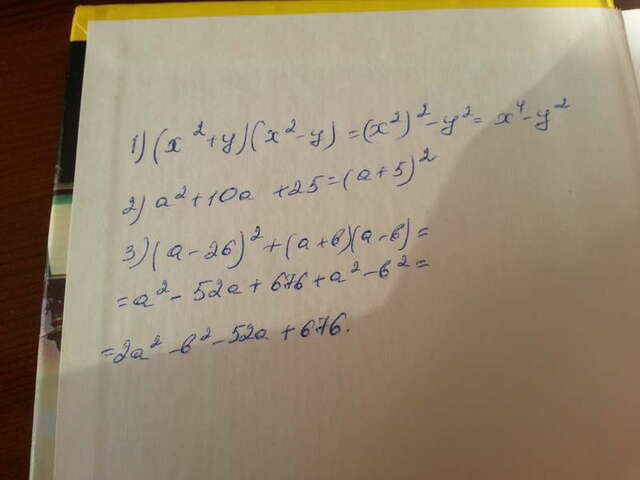 1) (x²+y)(x²-y)=(x²)²-y²= x⁴-y²
2) a²+10a +25=(a+5)²
3) (a-26)²+(a+в)(a-в)=
=a²-52a+676+a²-в²=
=2a²-в²-52a+676.